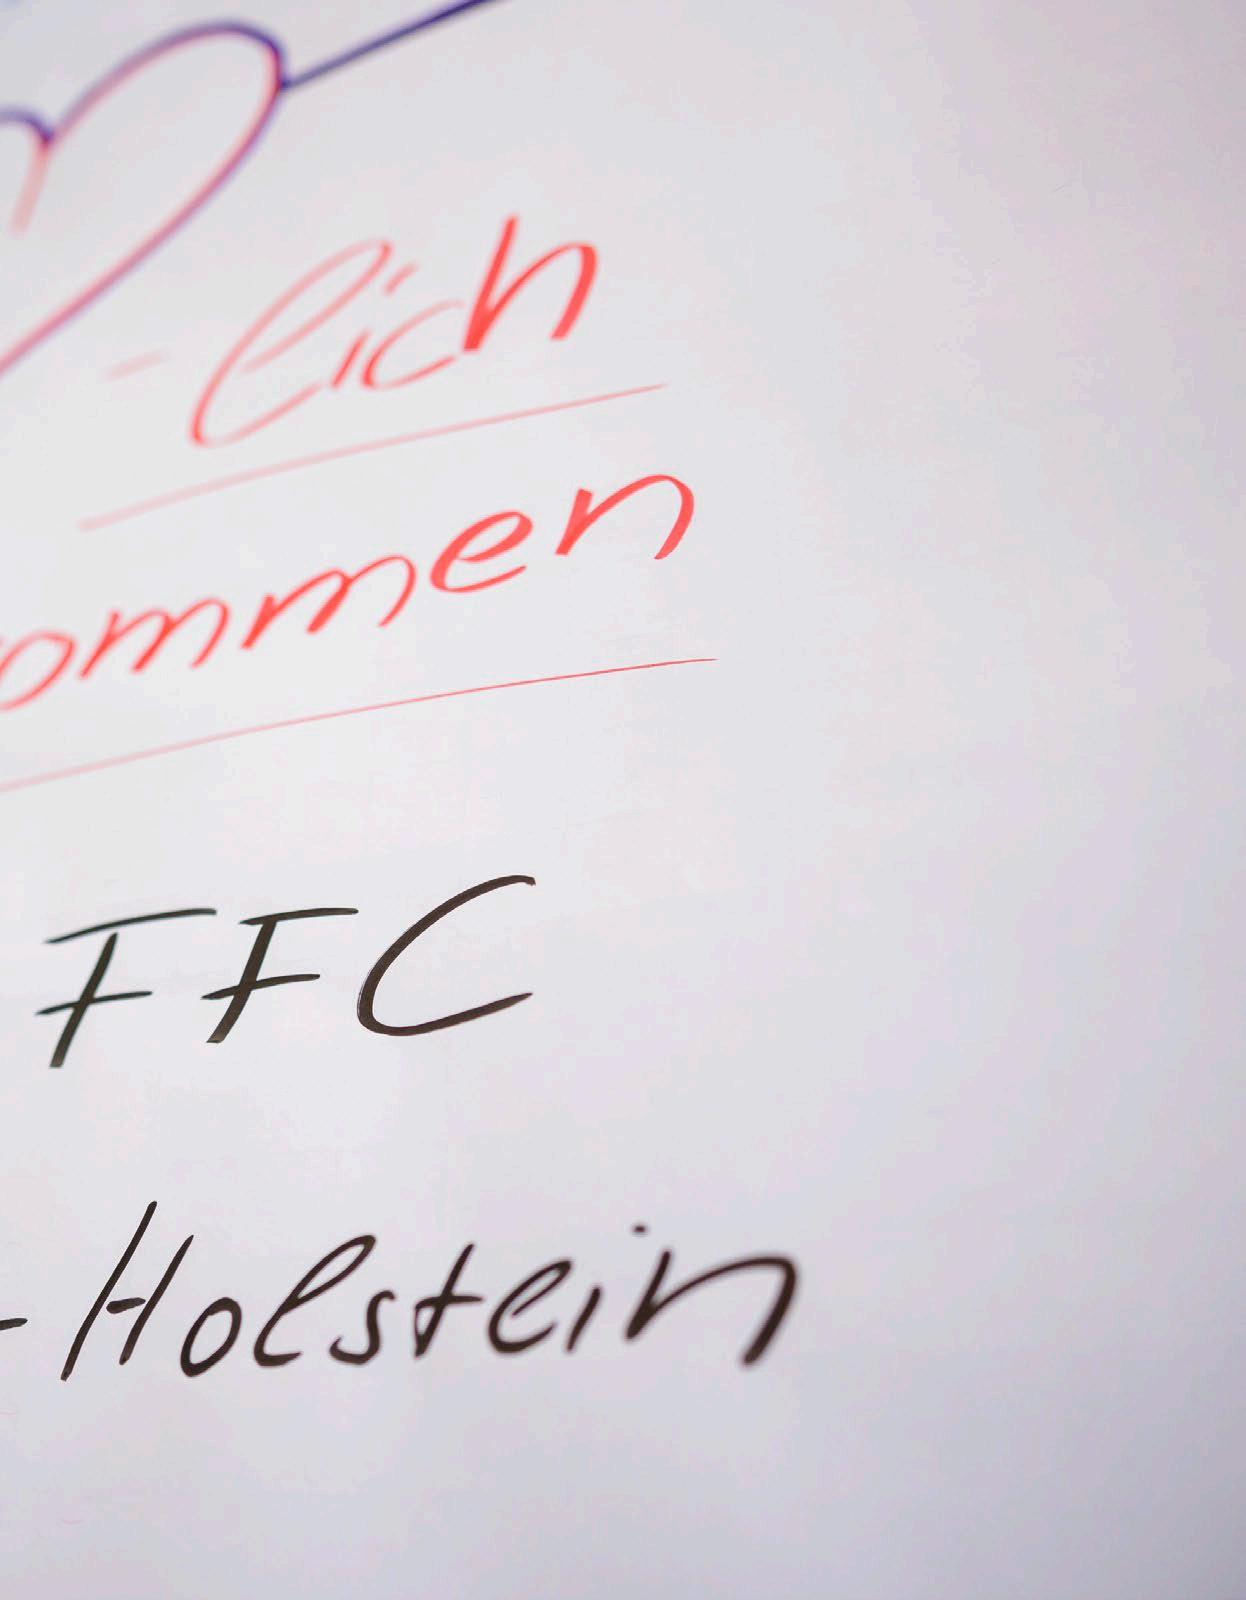 -lich
ommen
FFC
-Holstein